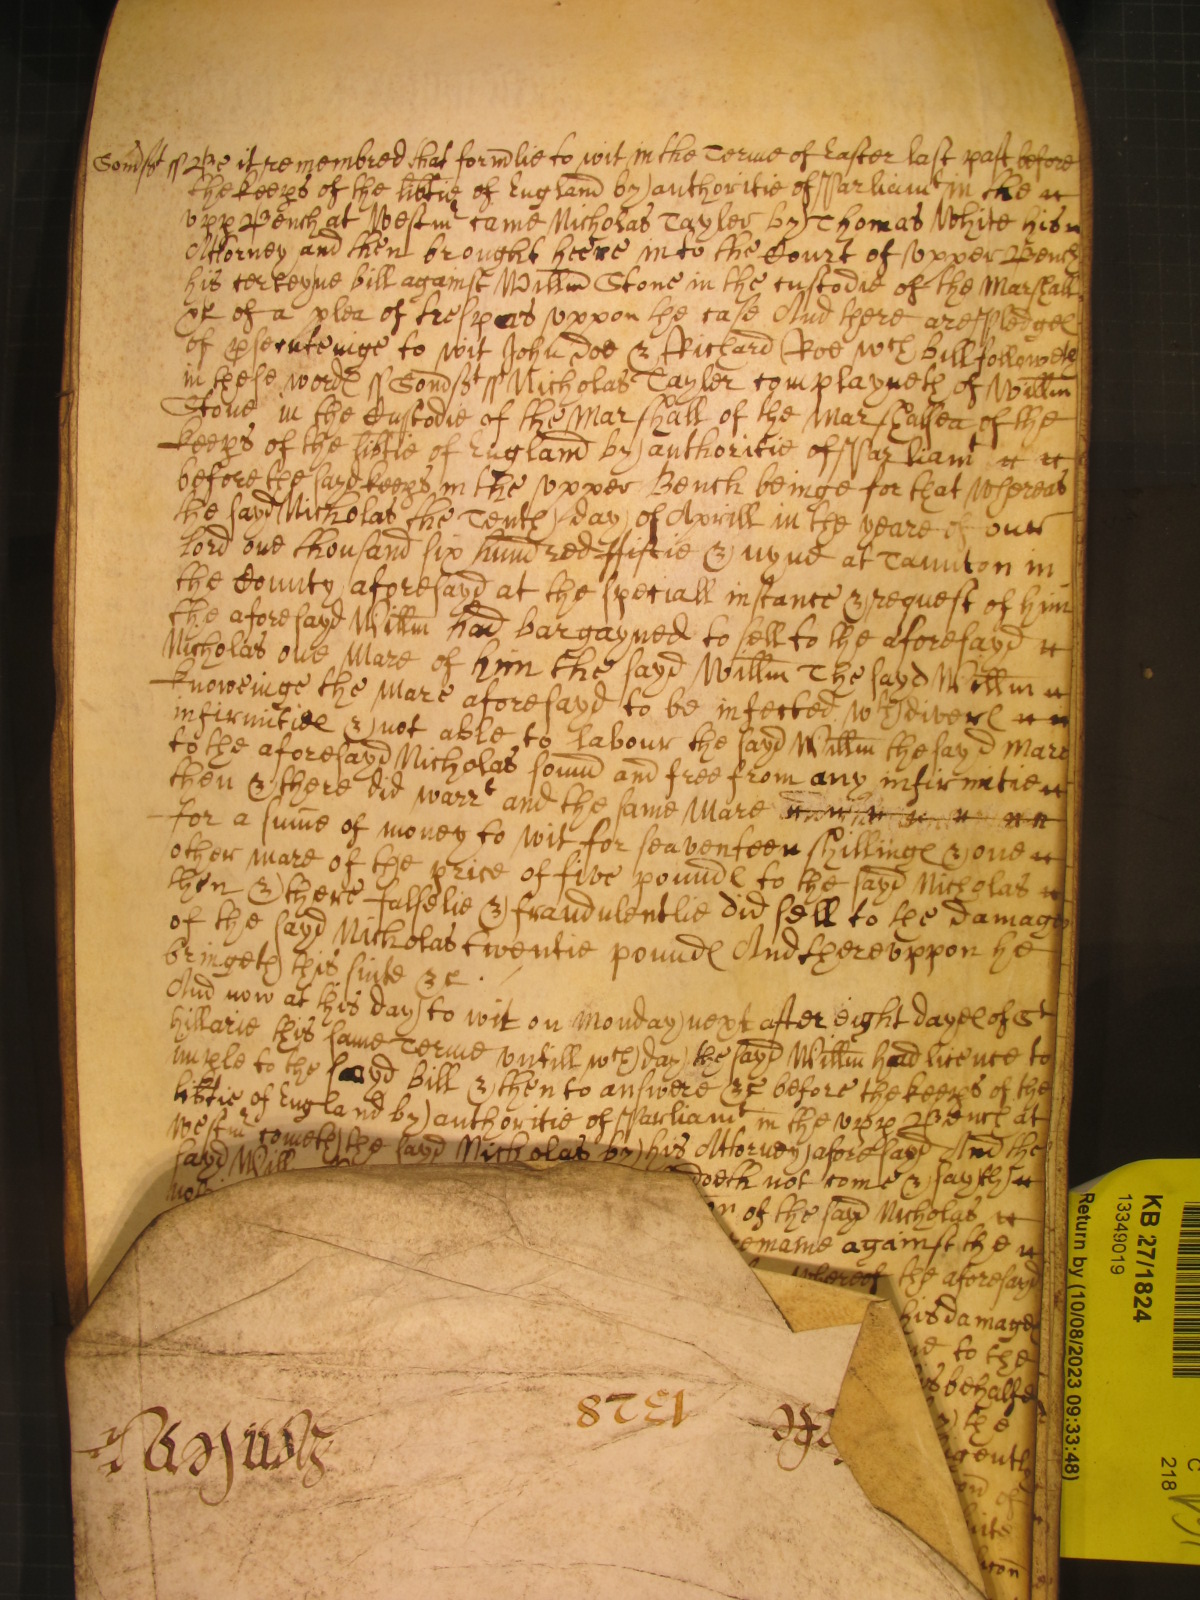 Somst ss Be it remembred that formlie to wit in the Terme of Easter last past before
the keeps of the libtie of England by authoritie of Parliamt in the
upp Bench at Westmr came Nicholas Tayler by Thomas White his
Attorney and then brought heere into the Court of upper Bench
his certeyne bill against Willm Stone in the custodie of the Marshall
&c of a plea of trespas uppon the case And there are Pledges
of psecuteinge to wit John Doe & Richard Roe wch bill followeth
in these words ss Somst ss Nicholas Tayler complayneth of Willm
Stone in the Custodie of the Marshall of the Marshalsea of the
keeps of the libtie of England by authoritie of Parliamt
before the sayd keeps in the upper Bench beinge for that whereas
the sayd Nicholas the Tenth day of Aprill in the yeare of our
Lord one thousand six hundred fiftie & nyne at Taunton in
the County aforesayd at the speciall instance & request of him
the aforesayd Willm had bargayned to sell to the aforesayd
Nicholas one Mare of him the sayd Willm The sayd Willm
knoweinge the mare aforesayd to be infected wth divers
infirmities & not able to labour the sayd Willm the sayd mare
to the aforesayd Nicholas sound and free from any infirmitie
then & there did warrt and the same Mare
for a sume of money to wit for seaventeen shillings & one
other mare of the price of five pounds to the sayd Nicholas
then & there falselie & fraudulentlie did sell to the damage
of the sayd Nicholas twentie pounds And thereuppon he
bringeth this suite &c
And now at this day to wit on Monday next after eight dayes of St
Hillarie this same Terme untill wch day the sayd Willm had licence to
imple to the sayd Bill & then to answere &c before the keeps of the
libtie of England by authoritie of Parliamt in the upp Bench at
Westmr cometh the sayd Nicholas by his Attorney aforesayd And the
sayd Will doeth not come & sayth
of the sayd Nicholas
remaine against the
whereof the aforesayd
his damage
to the
behalfe
the
1328
KB 27/1824
13349019
Return by (10/08/2023 09:33:48)
C
218